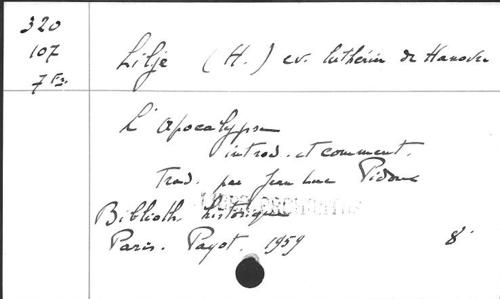 320
107
7 Fs.
Lilje (H.) ev. luthérien de Hanovre
L'Apocalypse
introd. et comment.
Trad. par Jean Luc Pidoux
Biblioth. historique
Paris. Payot. 1959 8°